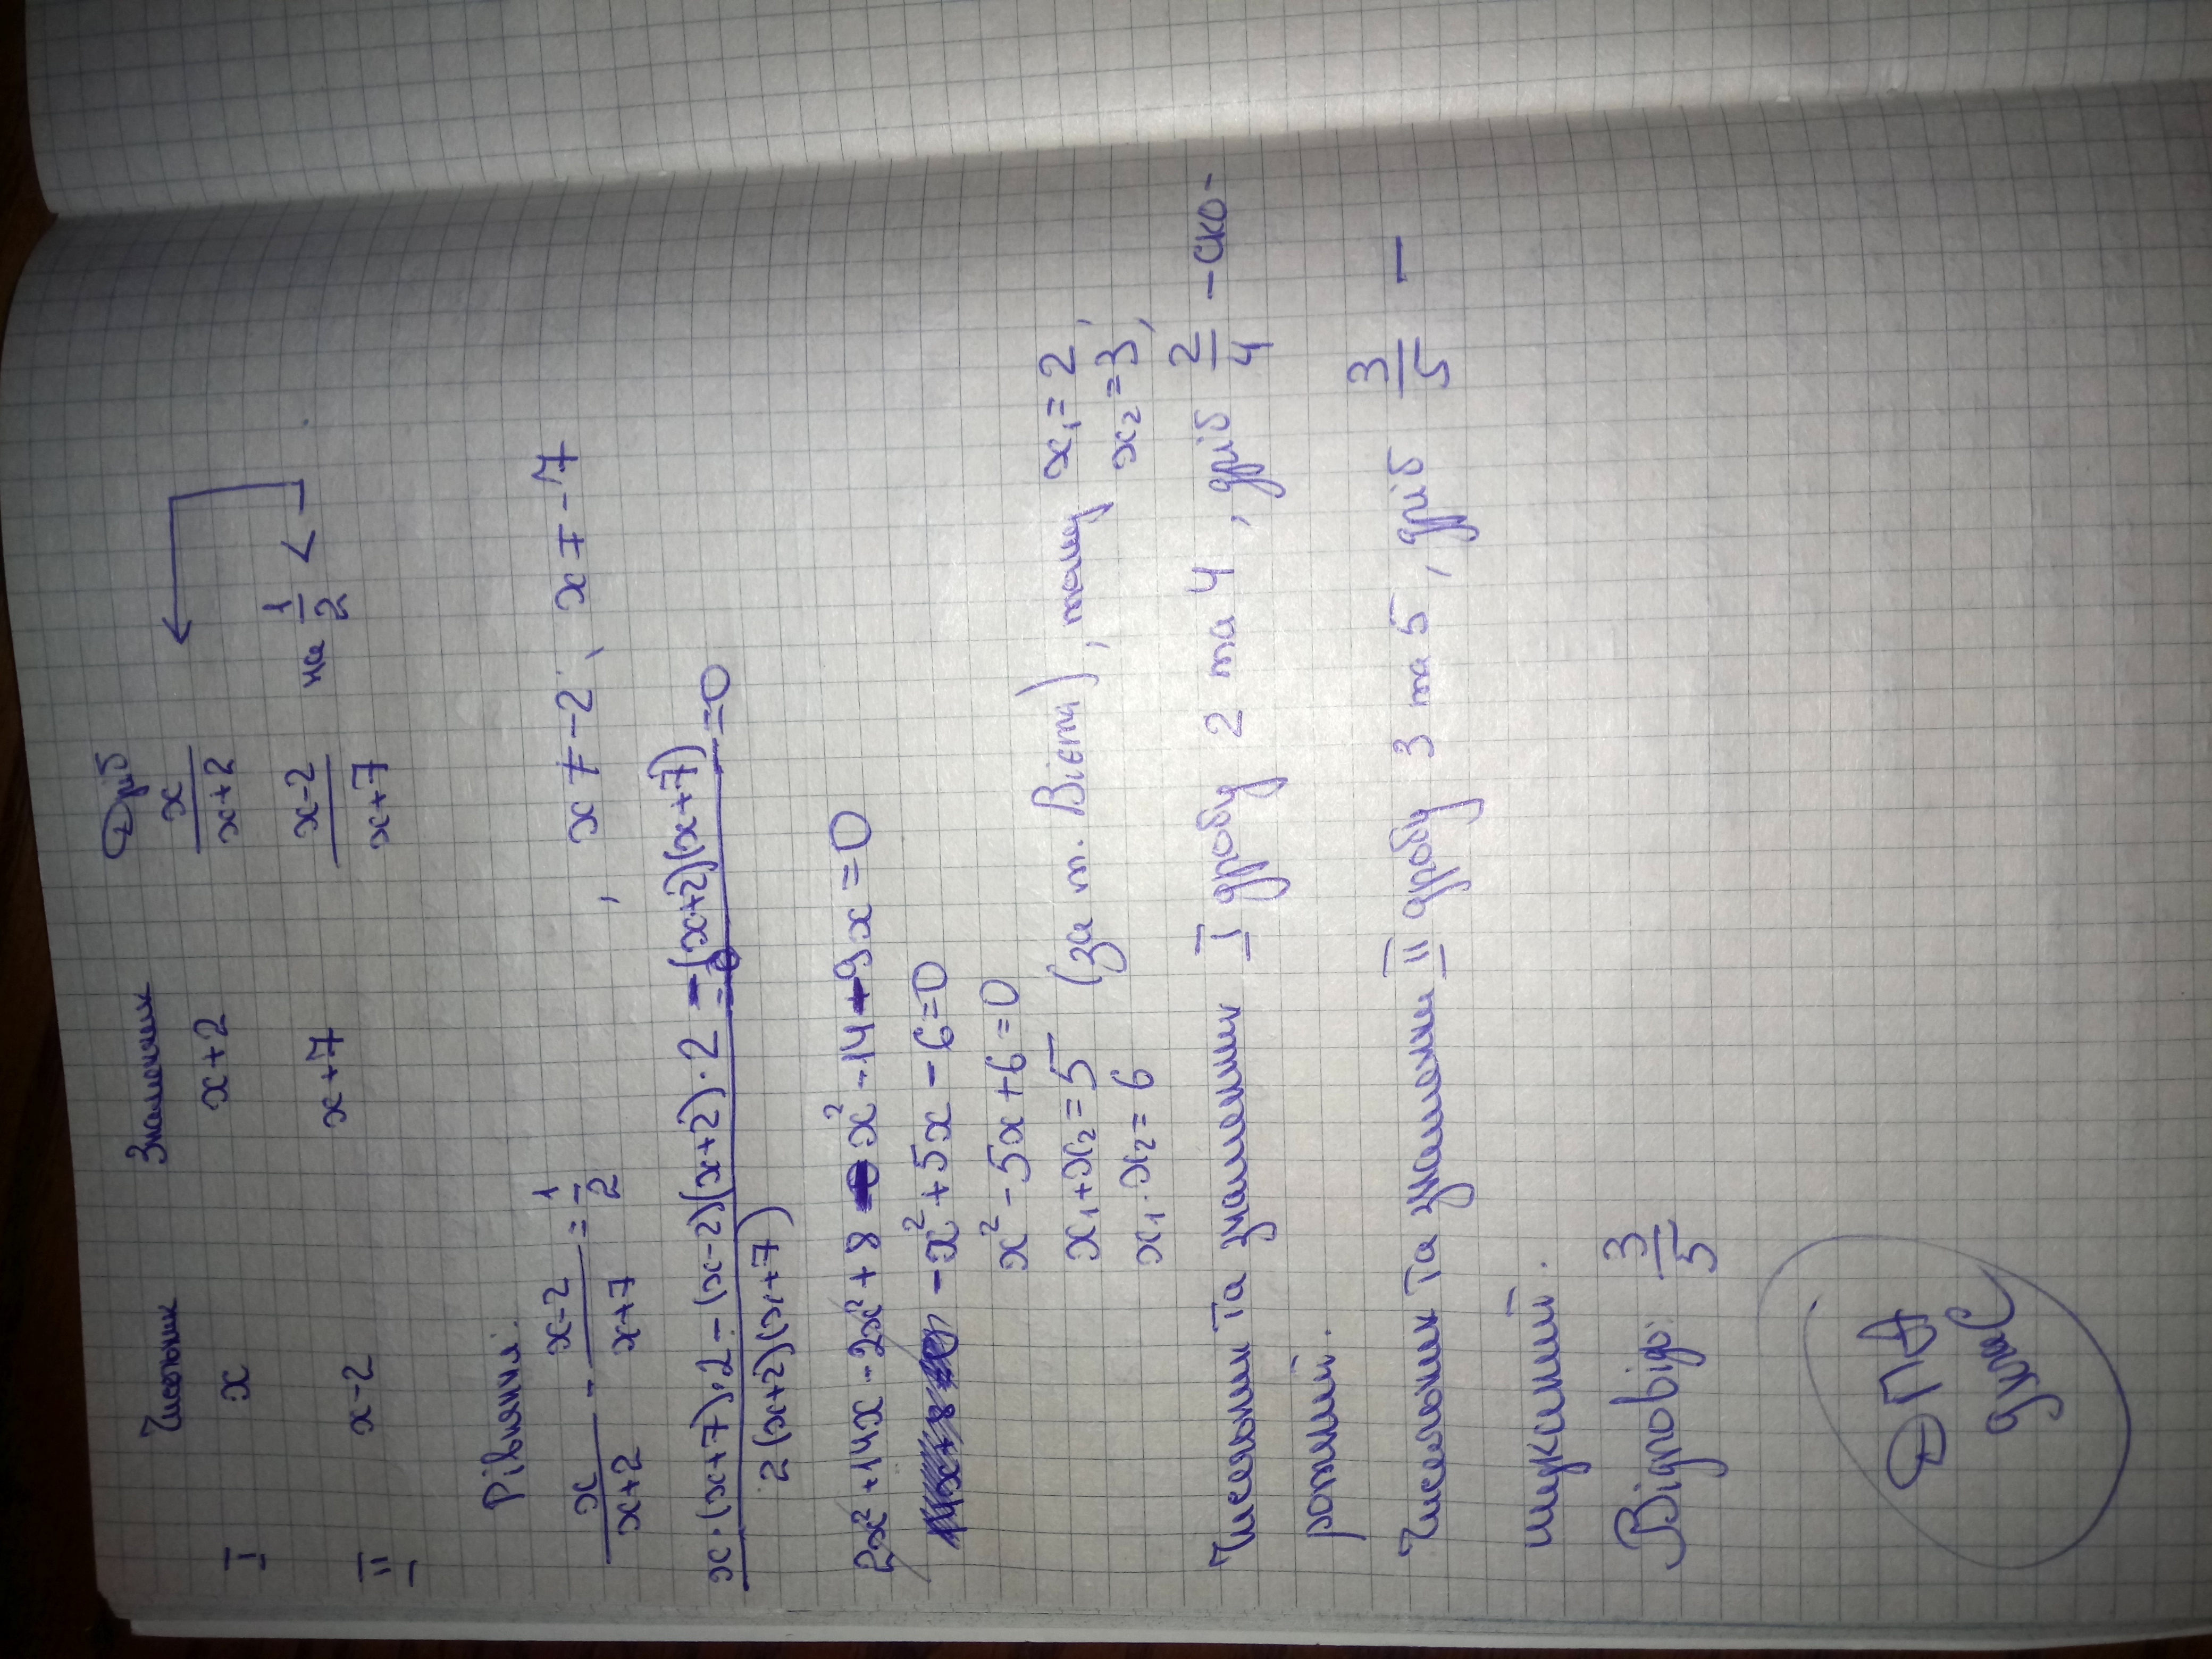 Чисельник Знаменник Дріб
I x x+2 x/(x+2)
II x-2 x+7 (x-2)/(x+7) на 1/2 <
Рівняння:
x/(x+2) - (x-2)/(x+7) = 1/2, x ≠ -2, x ≠ -7
(x·(x+7)·2-(x-2)(x+2)·2-(x+2)(x+7))/(2(x+2)(x+7)) = 0
2x²+14x-2x²+8-x²-14-9x=0
-x²+5x-6=0
x²-5x+6=0
x₁+x₂=5 (за т. Вієта), тому x₁=2,
x₁·x₂=6 x₂=3,
Чисельник та знаменник I дробу 2 та 4, дріб 2/4 - ско-
ротний.
Чисельник та знаменник II дробу 3 та 5, дріб 3/5 -
шуканий.
Відповідь: 3/5
ДПА